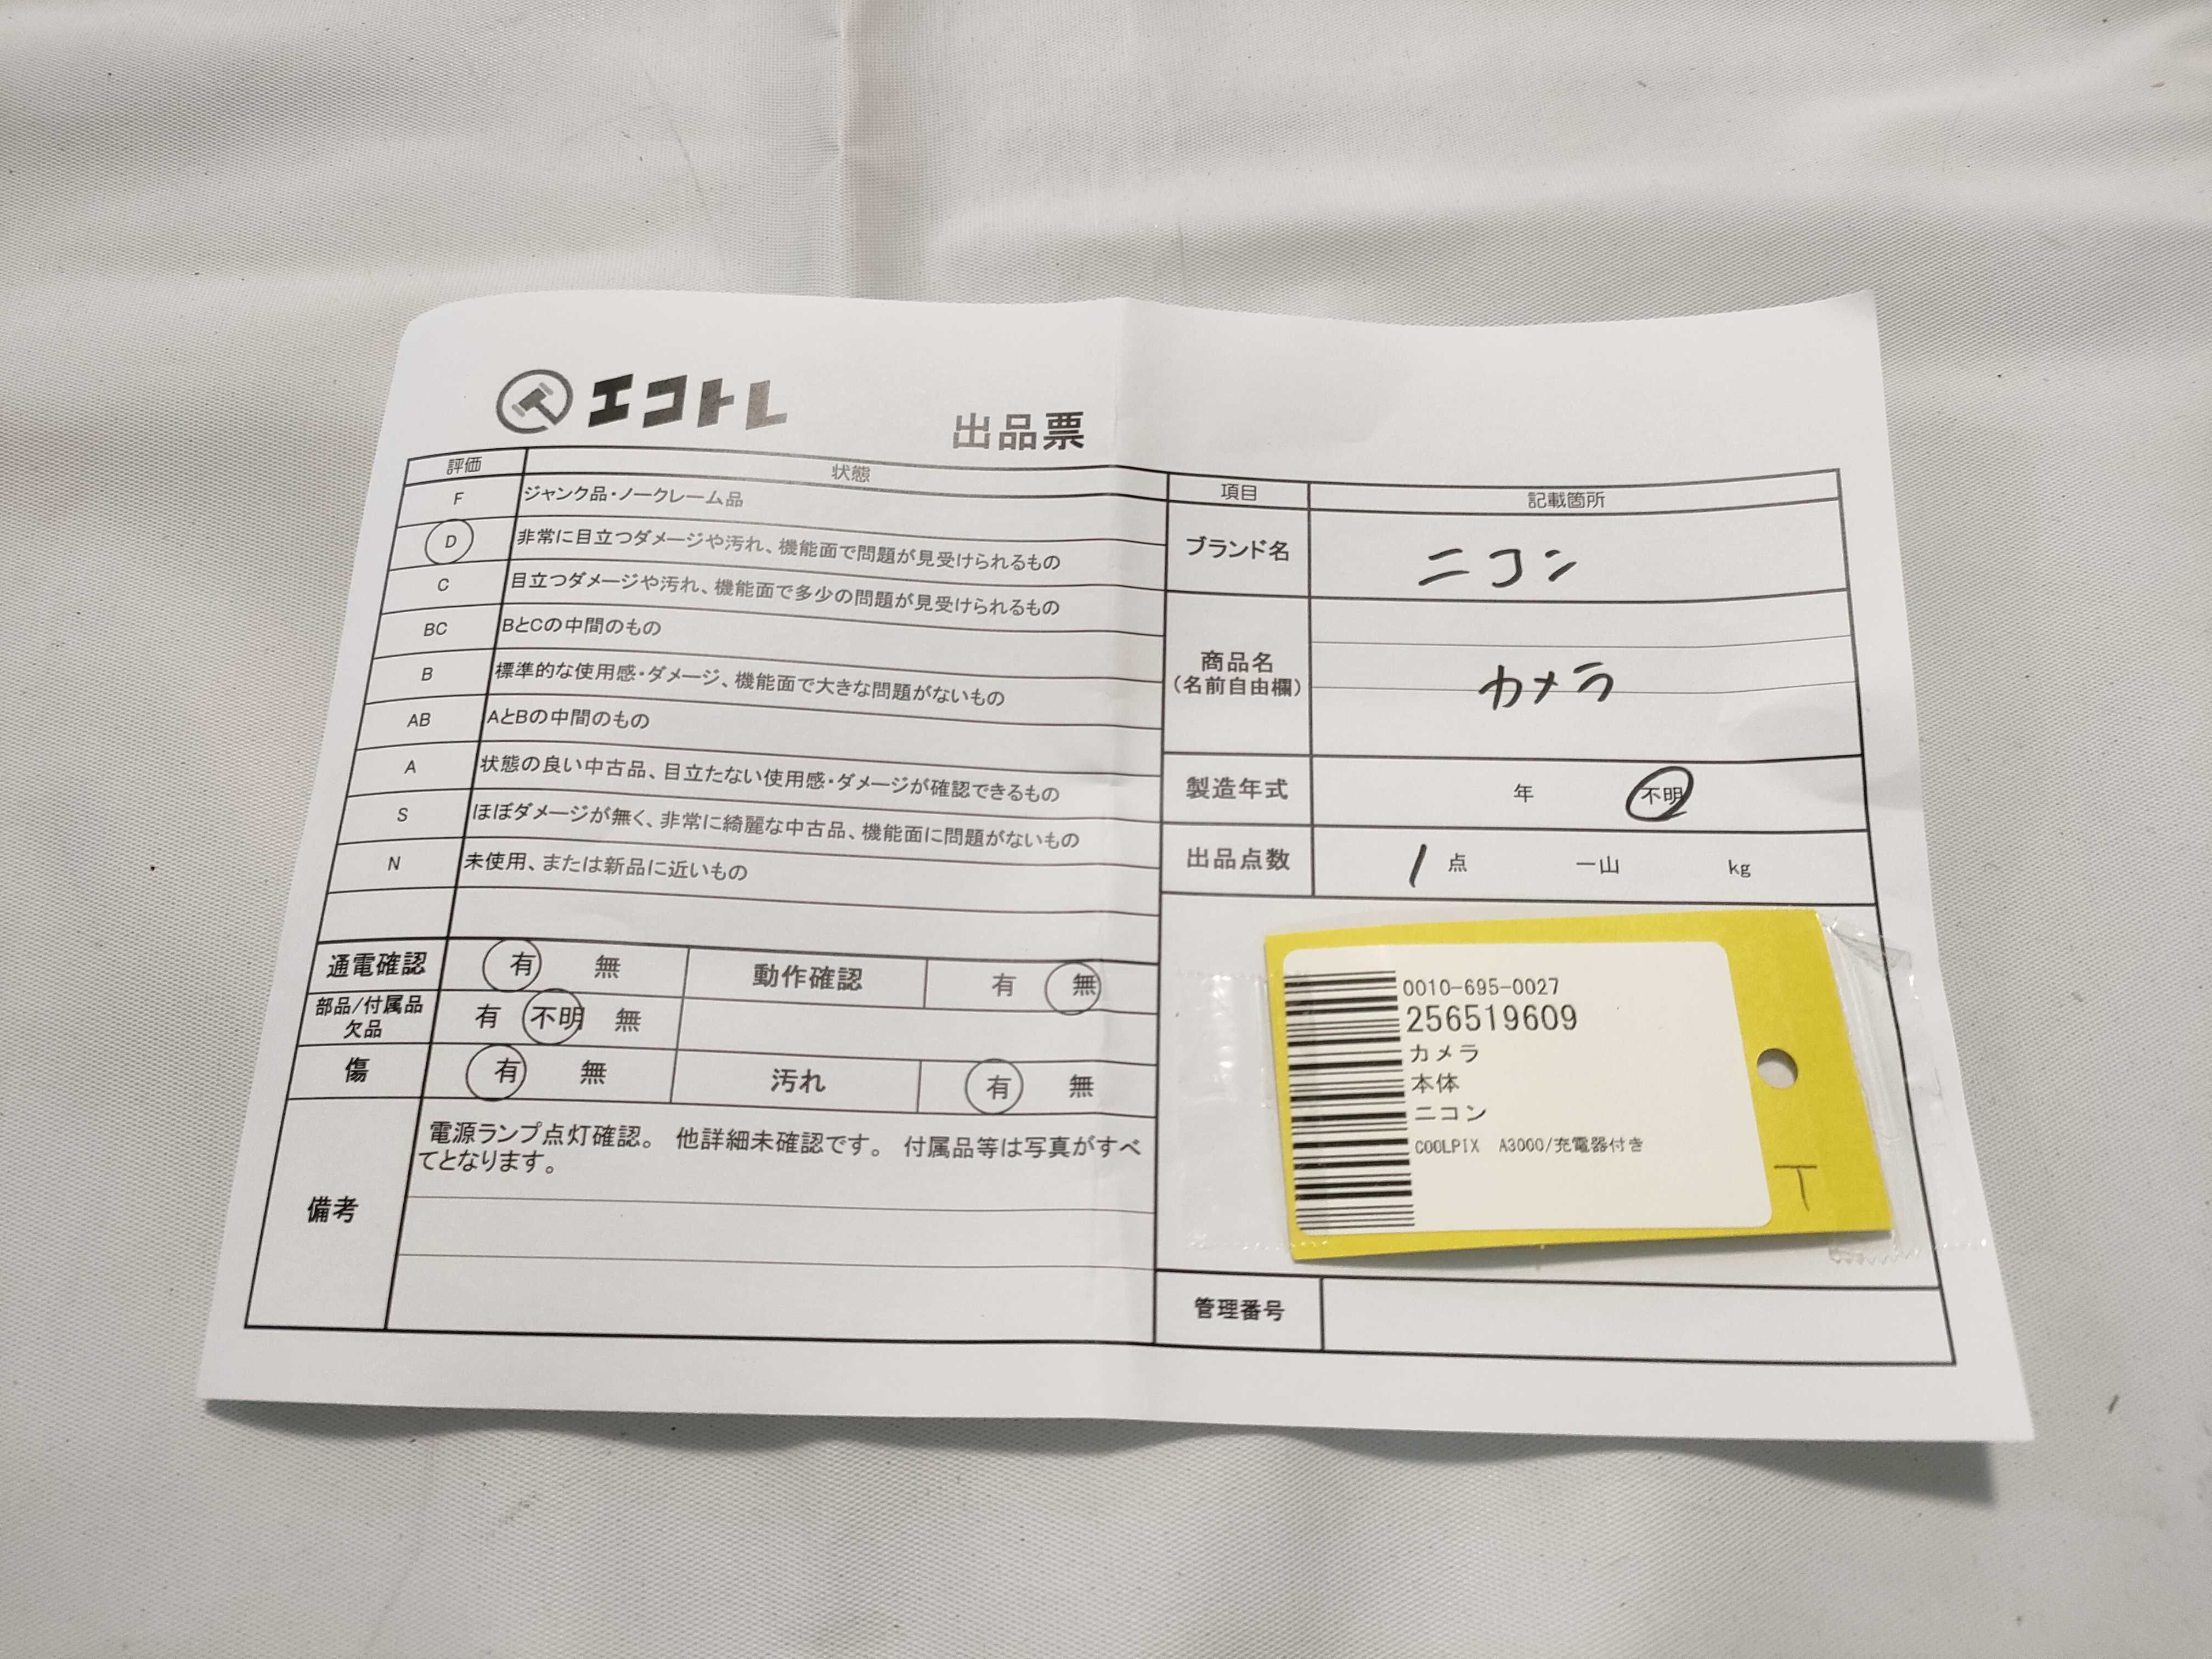 エコトレ
出品票
評価 状態
F ジャンク品・ノークレーム品
D 非常に目立つダメージや汚れ、機能面で問題が見受けられるもの
C 目立つダメージや汚れ、機能面で多少の問題が見受けられるもの
BC BとCの中間のもの
B 標準的な使用感・ダメージ、機能面で大きな問題がないもの
AB AとBの中間のもの
A 状態の良い中古品、目立たない使用感・ダメージが確認できるもの
S ほぼダメージが無く、非常に綺麗な中古品、機能面に問題がないもの
N 未使用、または新品に近いもの
通電確認 有 無 動作確認 有 無
部品/付属品
欠品 有 不明 無
傷 有 無 汚れ 有 無
備考
電源ランプ点灯確認。 他詳細未確認です。 付属品等は写真がすべ
てとなります。
項目 記載箇所
ブランド名 ニコン
商品名
(名前自由欄)
カメラ
製造年式 年 不明
出品点数 1 点 一山 kg
0010-695-0027
256519609
カメラ
本体
ニコン
COOLPIX A3000/充電器付き
T
管理番号